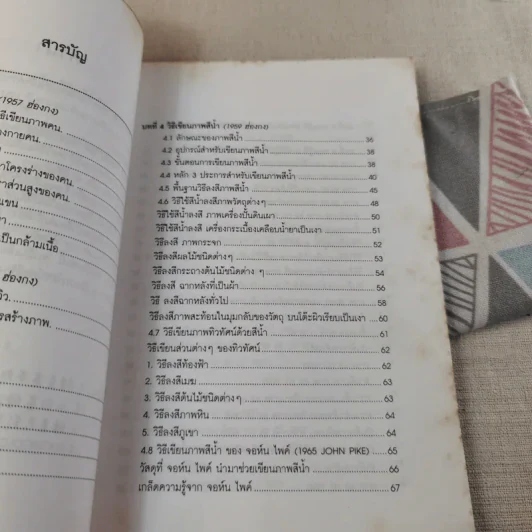 สารบัญ
(1957 ฮ่องกง)
ธีเขียนภาพคน.
องกายคน.
าโครงร่างของคน.
าส่วนสูงของคน.
แขน
ขา
เป็นกล้ามเนื้อ
ฮ่องกง)
วิว.
รสร้างภาพ.
บทที่ 4 วิธีเขียนภาพสีน้ำ (1969 ฮ่องกง)
4.1 ลักษณะของภาพสีน้ำ 36
4.2 อุปกรณ์สำหรับเขียนภาพสีน้ำ 38
4.3 ขั้นตอนการเขียนภาพสีน้ำ 38
4.4 หลัก 3 ประการสำหรับเขียนภาพสีน้ำ 40
4.5 พื้นฐานวิธีลงสีภาพสีน้ำ 45
4.6 วิธีใช้สีน้ำลงสีภาพวัตถุต่างๆ 48
วิธีใช้สีน้ำลงสี ภาพเครื่องปั้นดินเผา 50
วิธีใช้สีน้ำลงสี เครื่องกระเบื้องเคลือบน้ำยาเป็นเงา 51
วิธีลงสี ภาพกระจก 52
วิธีลงสีผลไม้ชนิดต่างๆ 53
วิธีลงสีกระถางต้นไม้ชนิดต่าง ๆ 54
วิธีลงสี ฉากหลังที่เป็นผ้า 56
วิธี ลงสีฉากหลังทั่วไป 58
วิธีลงสีภาพสะท้อนในมุมกลับของวัตถุ บนโต๊ะผิวเรียบเป็นเงา 60
4.7 วิธีเขียนภาพทิวทัศน์ด้วยสีน้ำ 61
วิธีเขียนส่วนต่างๆ ของทิวทัศน์ 62
1. วิธีลงสีท้องฟ้า 62
2. วิธีลงสีเมฆ 63
3. วิธีลงสีต้นไม้ชนิดต่างๆ 63
4. วิธีลงสีภาพหิน 64
5. วิธีลงสีภูเขา 64
4.8 วิธีเขียนภาพสีน้ำ ของ จอห์น ไพค์ (1965 JOHN PIKE) 65
วัสดุที่ จอห์น ไพค์ นำมาช่วยเขียนภาพสีน้ำ 66
เกล็ดความรู้จาก จอห์น ไพค์ 67